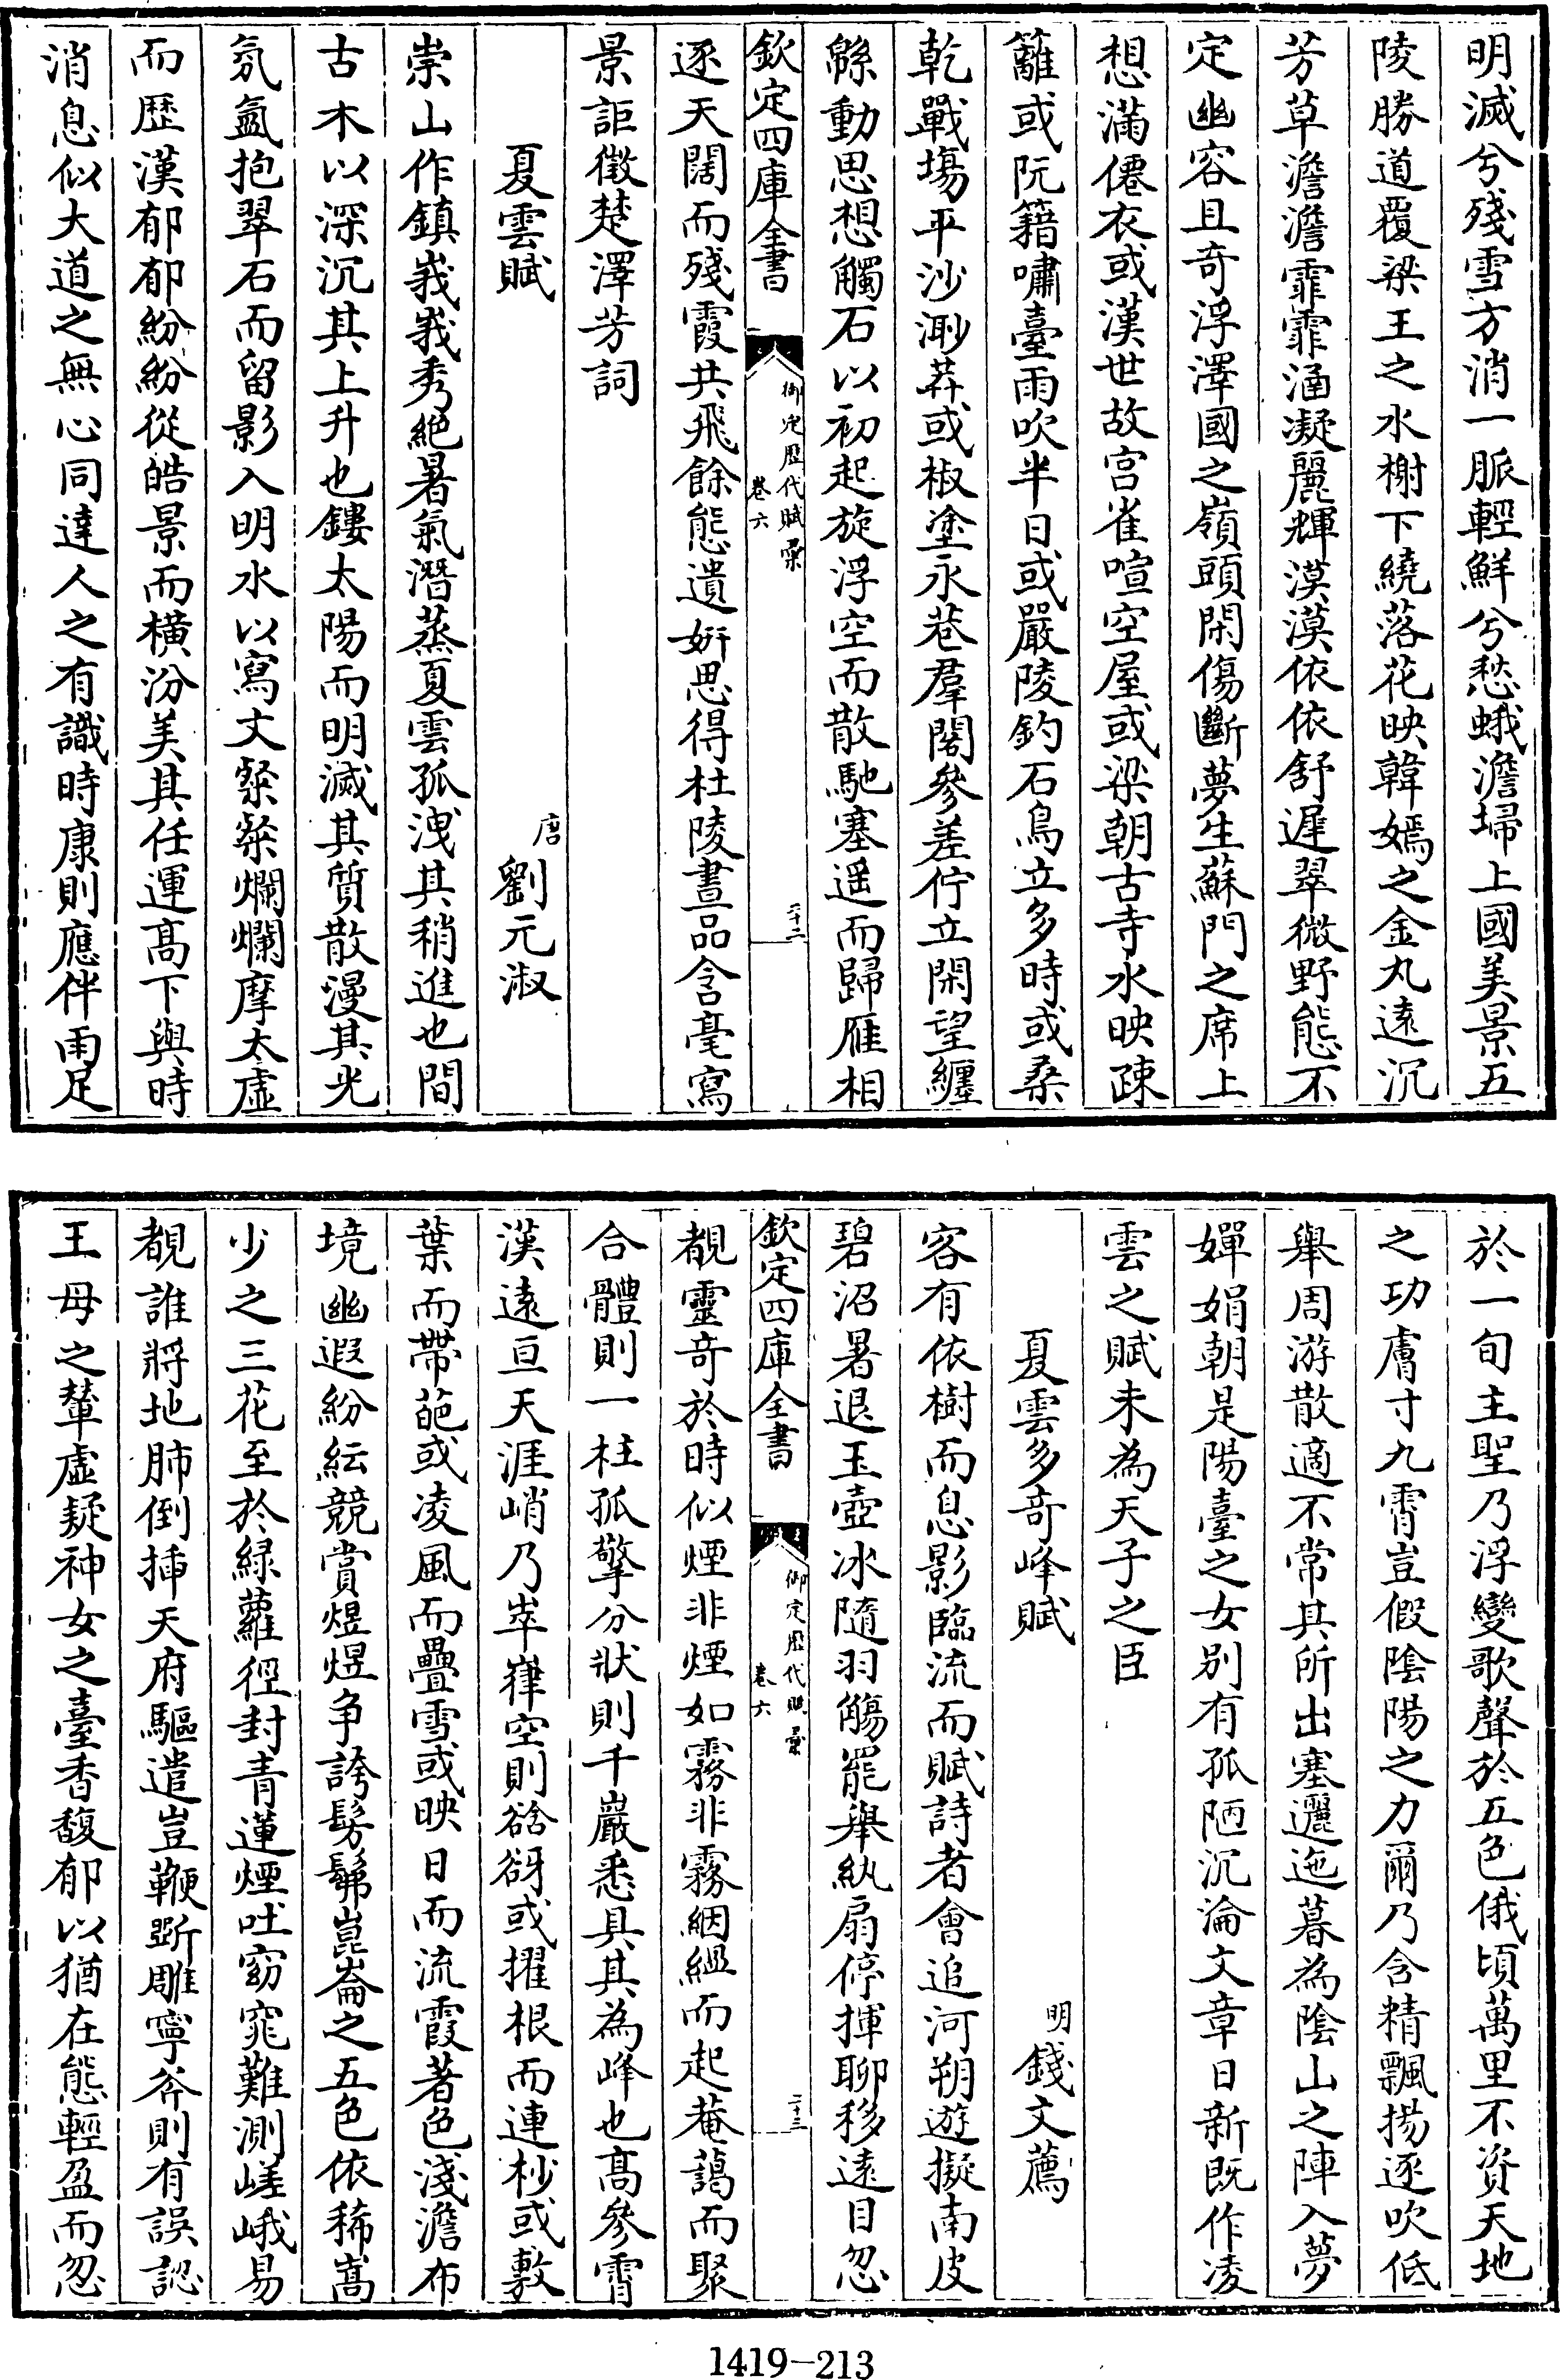 明滅兮殘雪方消一脈輕鮮兮愁蛾澹埽上國美景五
陵勝道覆梁王之水榭下繞落花映韓嫣之金丸遠沉
芳草澹澹霏霏涵凝麗輝漠漠依依舒遲翠微野態不
定幽容且奇浮澤國之嶺頭閑傷斷夢生蘇門之席上
想滿僊衣或漢世故宫雀喧空屋或梁朝古寺水映疎
籬或阮籍嘯臺雨吹半日或嚴陵釣石鳥立多時或桑
乾戰塲平沙渺莽或椒塗永巷羣閣參差佇立閑望纏
緜動思想觸石以初起旋浮空而散馳塞遥而歸雁相
欽定四庫全書
御定歷代賦彙
卷六
二十二
逐天闊而殘霞共飛餘態遺妍思得杜陵畫品含毫寫
景詎徵楚澤芳詞
夏雲賦
唐劉元淑
崇山作鎮峩峩秀絕暑氣潛蒸夏雲孤洩其稍進也間
古木以深沉其上升也鏤太陽而明滅其質散漫其光
氛氳抱翠石而留影入明水以寫文粲粲爛爛摩太虛
而歷漢郁郁紛紛從皓景而橫汾美其任運高下與時
消息似大道之無心同達人之有識時康則應伴雨足
於一旬主聖乃浮變歌聲於五色俄頃萬里不資天地
之功膚寸九霄豈假陰陽之力爾乃含精飄揚逐吹低
舉周游散適不常其所出塞邐迤暮為陰山之陣入夢
嬋娟朝是陽臺之女别有孤陋沉淪文章日新既作凌
雲之賦未為天子之臣
夏雲多奇峰賦
明錢文薦
客有依樹而息影臨流而賦詩者會追河朔遊擬南皮
碧沼暑退玉壺冰隨羽觴罷舉紈扇停揮聊移遠目忽
欽定四庫全書
御定歷代賦彙
卷六
二十三
覩靈奇於時似煙非煙如霧非霧絪緼而起菴藹而聚
合體則一柱孤擎分狀則千巖悉具其為峰也高參霄
漢遠亘天涯峭乃崒嵂空則谽谺或擢根而連杪或敷
葉而帶葩或凌風而疊雪或映日而流霞著色淺澹布
境幽遐紛紜競賞煜煜争誇髣髴崑崙之五色依稀嵩
少之三花至於緑蘿徑封青蓮煙吐窈窕難測嵯峨易
覩誰將地肺倒插天府驅遣豈鞭斲雕寧斧則有誤認
王母之輦虛疑神女之臺香馥郁以猶在態輕盈而忽
1419-213